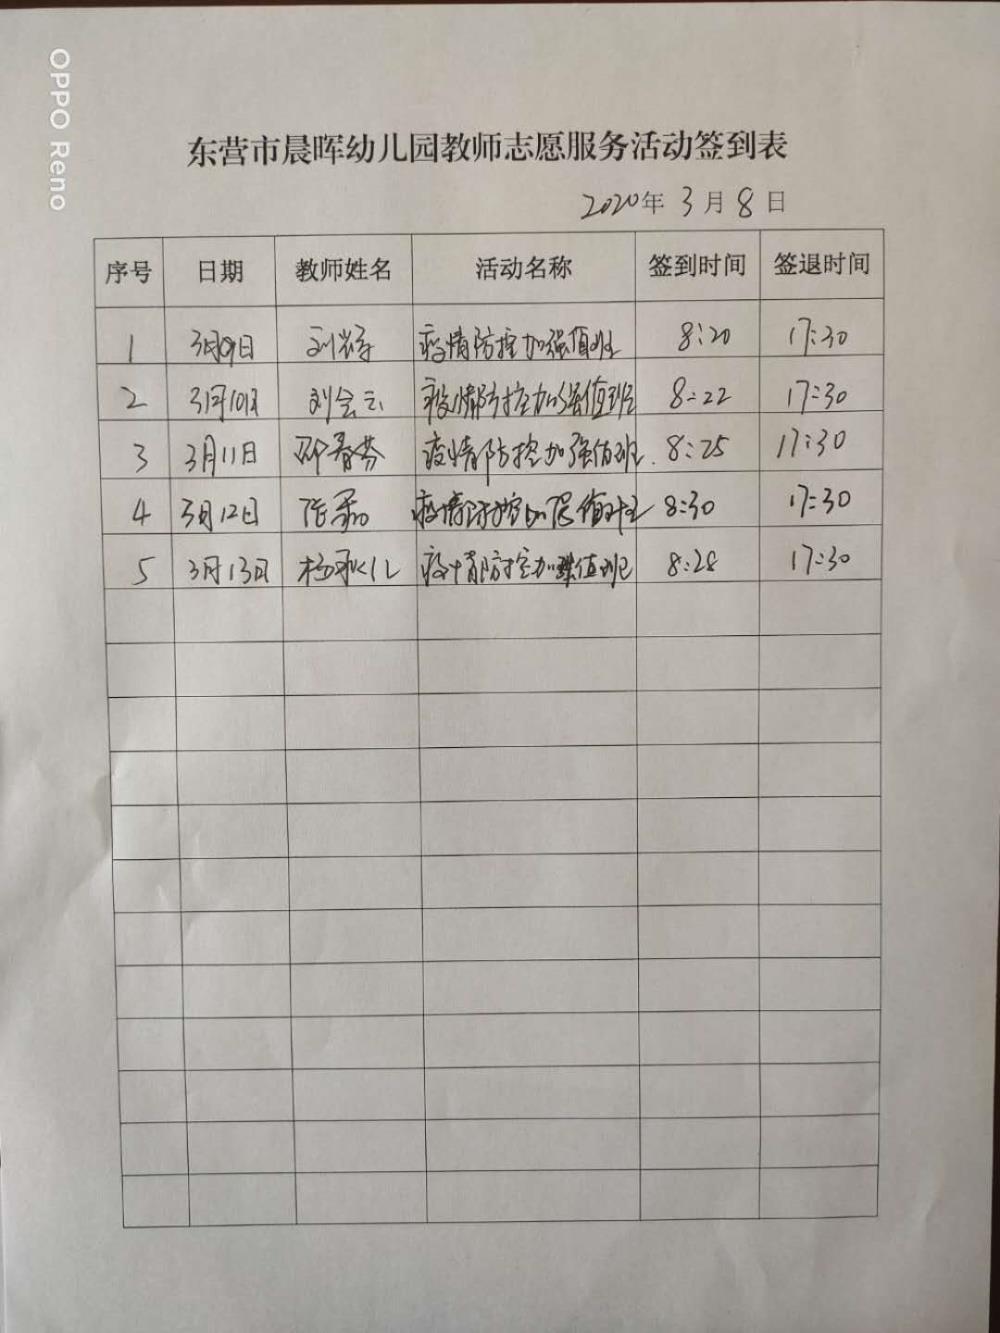 OPPO Reno
东营市晨晖幼儿园教师志愿服务活动签到表
2020年 3月8日
序号 日期 教师姓名 活动名称 签到时间 签退时间
1 3月9日 刘 疫情防控加强值班 8:20 17:30
2 3月10日 刘会云 疫情防控加强值班 8:22 17:30
3 3月11日 邵春芬 疫情防控加强值班. 8:25 17:30
4 3月12日 张 疫情防控加强值班 8:30 17:30
5 3月13日 杨 疫情防控加强值班 8:28 17:30